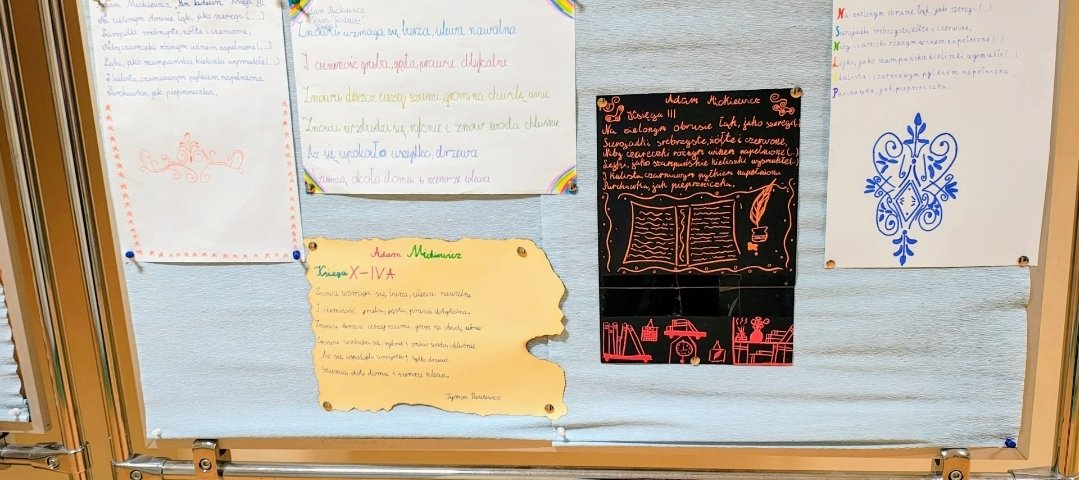 Adam Mickiewicz "Pan Tadeusz" Księga III
Na zielonym obrusie łąk, jako szeregi (...)
Surojadki srebrzyste, żółte i czerwone,
Niby czareczki różnym winem napełnione (...)
Lejki, jako szampańskie kieliszki wysmukłe (...)
I kulista, czarniawym pyłkiem napełniona
Purchawka, jak pieprzniczka.
Adam Mickiewicz
Pan Tadeusz
Znowu wzmaga się burza, ulewa nawalna
I ciemność gruba, gęsta, prawie dotykalna
Znowu deszcz ciszej szumi, grom na chwilę uśnie
Znowu wzbudzi się, ryknie i znów wodą chluśnie
Aż się uspokoiło wszystko, drzewa
Szumią około domu i szemrze ulewa
Adam Mickiewicz
Księga X-IVA
Znowu wzmaga się burza, ulewa nawalna
I ciemność gruba, gęsta, prawie dotykalna.
Znowu deszcz ciszej szumi, grom na chwilę uśnie
Znowu wzbudzi się, ryknie i znów wodą chluśnie
Aż się uspokoiło wszystko; tylko drzewa
Szumią około domu i szemrze ulewa.
Tymon
Adam Mickiewicz
Księga III
Na zielonym obrusie łąk, jako szeregi(..)
Surojadki srebrzyste, żółte i czerwone,
Niby czareczki różnym winem napełnione (..)
Lejki, jako szampańskie kieliszki wysmukłe(..)
I kulista czarniawym pyłkiem napełniona
Purchawka, jak pieprzniczka.
Na zielonym obrusie łąk, jako szeregi (..)
Surojadki srebrzyste, żółte i czerwone,
Niby czareczki różnym winem napełnione (..)
Lejki, jako szampańskie kieliszki wysmukłe (..)
I kulista, czarniawym pyłkiem napełniona
Purchawka, jak pieprzniczka.